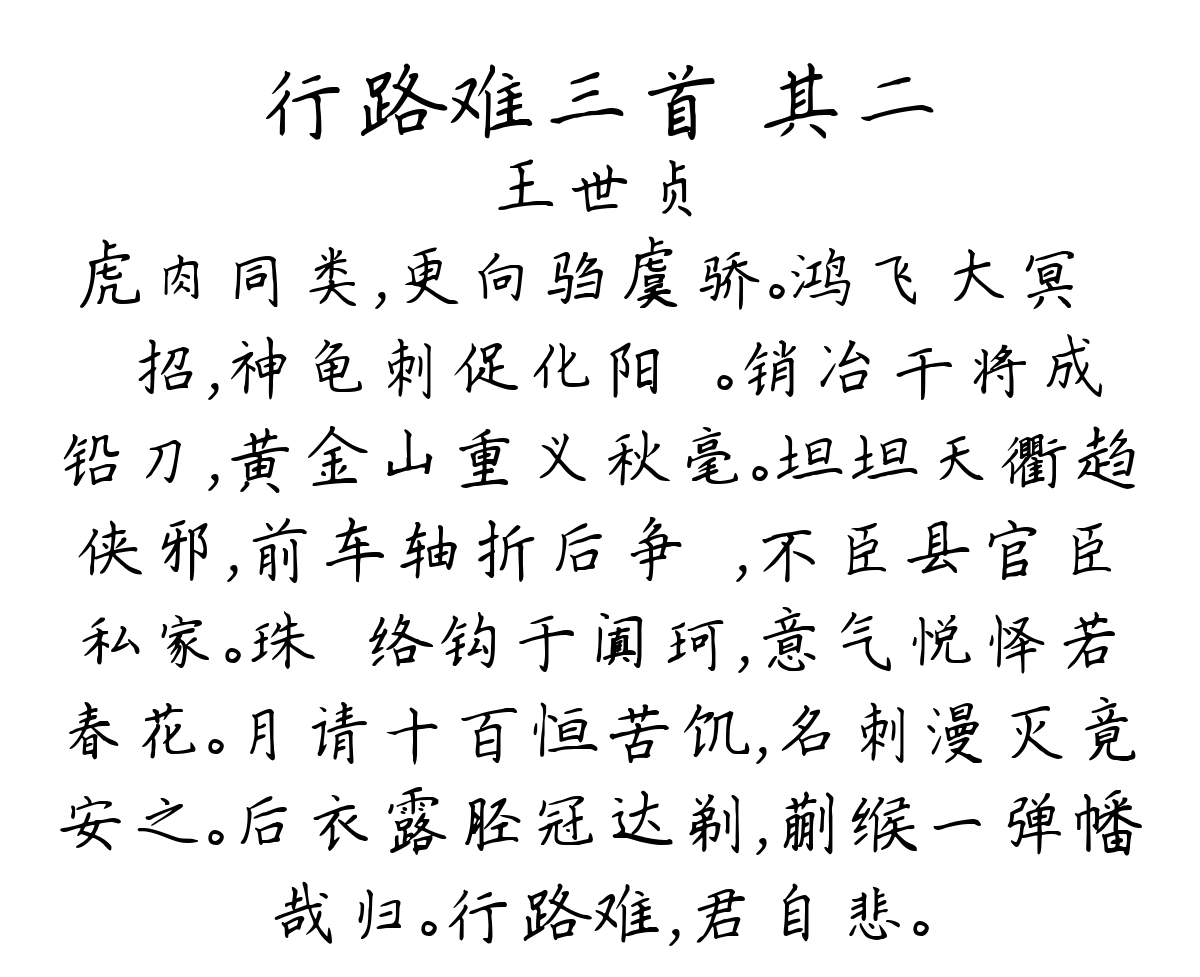 行路难三首 其二
王世贞
虎肉同类,更向驺虞骄。鸿飞大冥
招,神龟刺促化阳 。销冶干将成
铅刀,黄金山重义秋毫。坦坦天衢趋
侠邪,前车轴折后争 ,不臣县官臣
私家。珠 络钩于阗珂,意气悦怿若
春花。月请十百恒苦饥,名刺漫灭竟
安之。后衣露胫冠达剃,蒯缑一弹幡
哉归。行路难,君自悲。